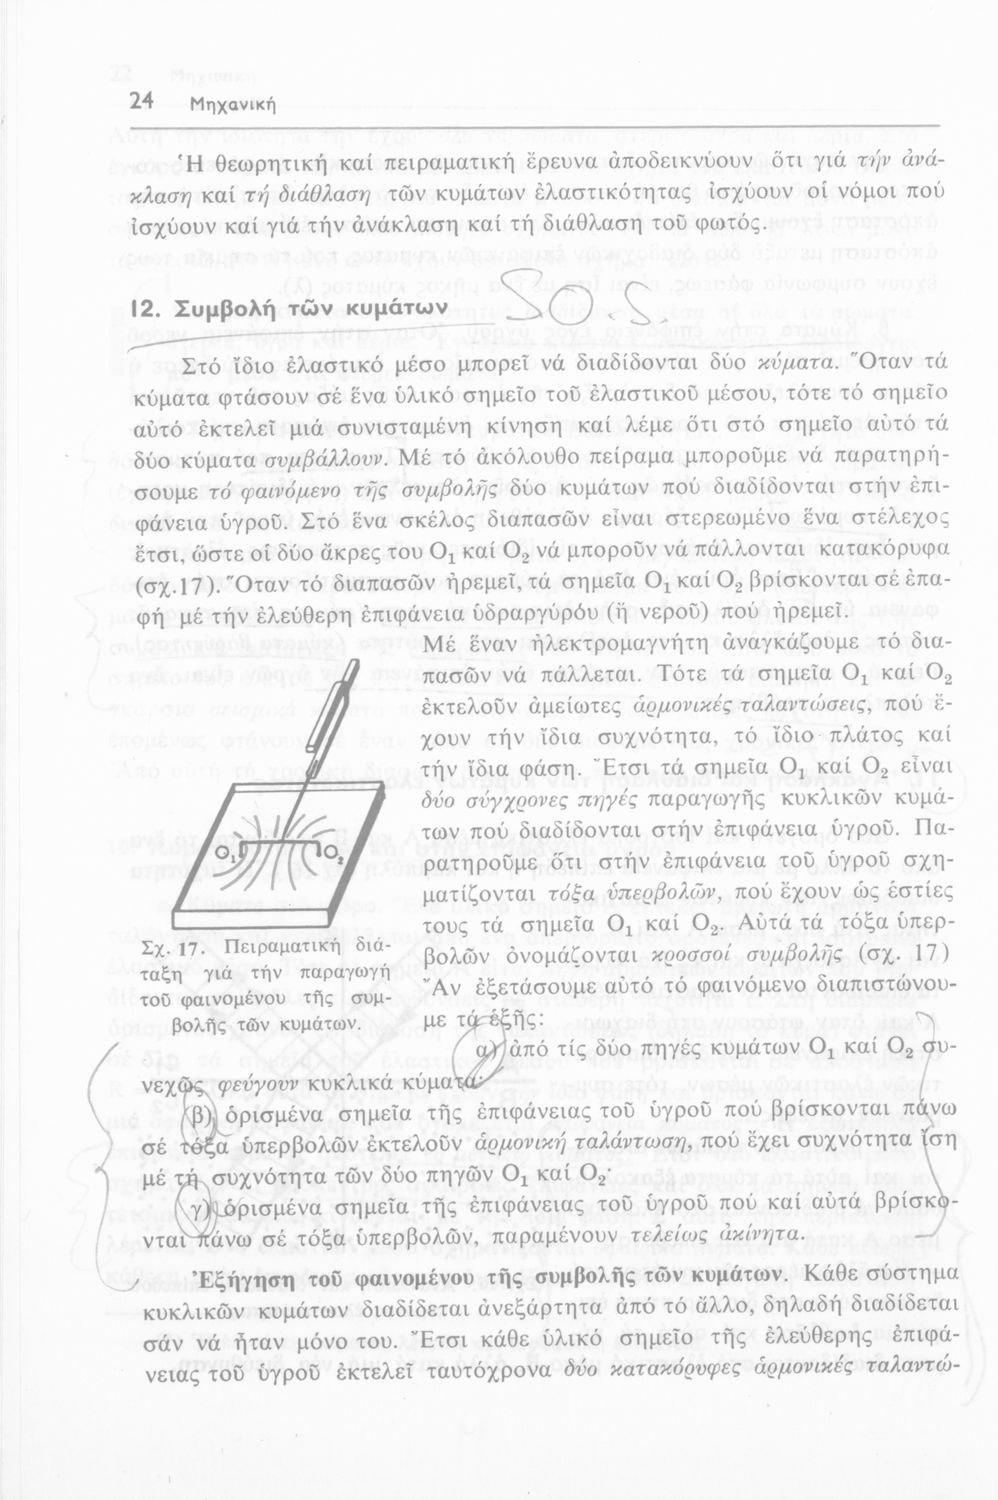 24 Μηχανική
Ἡ θεωρητική καί πειραματική ἔρευνα ἀποδεικνύουν ὅτι γιά τήν ἀνά-
κλαση καί τή διάθλαση τῶν κυμάτων ἐλαστικότητας ἰσχύουν οἱ νόμοι πού
ἰσχύουν καί γιά τήν ἀνάκλαση καί τή διάθλαση τοῦ φωτός.
12. Συμβολή τῶν κυμάτων SO.S
Στό ἴδιο ἐλαστικό μέσο μπορεῖ νά διαδίδονται δύο κύματα. Ὅταν τά
κύματα φτάσουν σέ ἕνα ὑλικό σημεῖο τοῦ ἐλαστικοῦ μέσου, τότε τό σημεῖο
αὐτό ἐκτελεῖ μιά συνισταμένη κίνηση καί λέμε ὅτι στό σημεῖο αὐτό τά
δύο κύματα συμβάλλουν. Μέ τό ἀκόλουθο πείραμα μποροῦμε νά παρατηρή-
σουμε τό φαινόμενο τῆς συμβολῆς δύο κυμάτων πού διαδίδονται στήν ἐπι-
φάνεια ὑγροῦ. Στό ἕνα σκέλος διαπασῶν εἶναι στερεωμένο ἕνα στέλεχος
ἔτσι, ὥστε οἱ δύο ἄκρες του Ο₁ καί Ο₂ νά μποροῦν νά πάλλονται κατακόρυφα
(σχ.17). Ὅταν τό διαπασῶν ἠρεμεῖ, τά σημεῖα Ο₁ καί Ο₂ βρίσκονται σέ ἐπα-
φή μέ τήν ἐλεύθερη ἐπιφάνεια ὑδραργύρου (ἤ νεροῦ) πού ἠρεμεῖ.
Μέ ἕναν ἠλεκτρομαγνήτη ἀναγκάζουμε τό δια-
πασῶν νά πάλλεται. Τότε τά σημεῖα Ο₁ καί Ο₂
ἐκτελοῦν ἀμείωτες ἁρμονικές ταλαντώσεις, πού ἔ-
χουν τήν ἴδια συχνότητα, τό ἴδιο πλάτος καί
τήν ἴδια φάση. Ἔτσι τά σημεῖα Ο₁ καί Ο₂ εἶναι
δύο σύγχρονες πηγές παραγωγῆς κυκλικῶν κυμά-
των πού διαδίδονται στήν ἐπιφάνεια ὑγροῦ. Πα-
ρατηροῦμε ὅτι στήν ἐπιφάνεια τοῦ ὑγροῦ σχη-
ματίζονται τόξα ὑπερβολῶν, πού ἔχουν ὡς ἑστίες
τους τά σημεῖα Ο₁ καί Ο₂. Αὐτά τά τόξα ὑπερ-
βολῶν ὀνομάζονται κροσσοί συμβολῆς (σχ. 17)
Ἄν ἐξετάσουμε αὐτό τό φαινόμενο διαπιστώνου-
με τά ἑξῆς:
Ο₁ Ο₂
Σχ. 17. Πειραματική διά-
ταξη γιά τήν παραγωγή
τοῦ φαινομένου τῆς συμ-
βολῆς τῶν κυμάτων.
α) ἀπό τίς δύο πηγές κυμάτων Ο₁ καί Ο₂ συ-
νεχῶς φεύγουν κυκλικά κύματα·
β) ὁρισμένα σημεῖα τῆς ἐπιφάνειας τοῦ ὑγροῦ πού βρίσκονται πάνω
σέ τόξα ὑπερβολῶν ἐκτελοῦν ἁρμονική ταλάντωση, πού ἔχει συχνότητα ἴση
μέ τή συχνότητα τῶν δύο πηγῶν Ο₁ καί Ο₂·
γ) ὁρισμένα σημεῖα τῆς ἐπιφάνειας τοῦ ὑγροῦ πού καί αὐτά βρίσκο-
νται πάνω σέ τόξα ὑπερβολῶν, παραμένουν τελείως ἀκίνητα.
Ἐξήγηση τοῦ φαινομένου τῆς συμβολῆς τῶν κυμάτων. Κάθε σύστημα
κυκλικῶν κυμάτων διαδίδεται ἀνεξάρτητα ἀπό τό ἄλλο, δηλαδή διαδίδεται
σάν νά ἦταν μόνο του. Ἔτσι κάθε ὑλικό σημεῖο τῆς ἐλεύθερης ἐπιφά-
νειας τοῦ ὑγροῦ ἐκτελεῖ ταυτόχρονα δύο κατακόρυφες ἁρμονικές ταλαντώ-